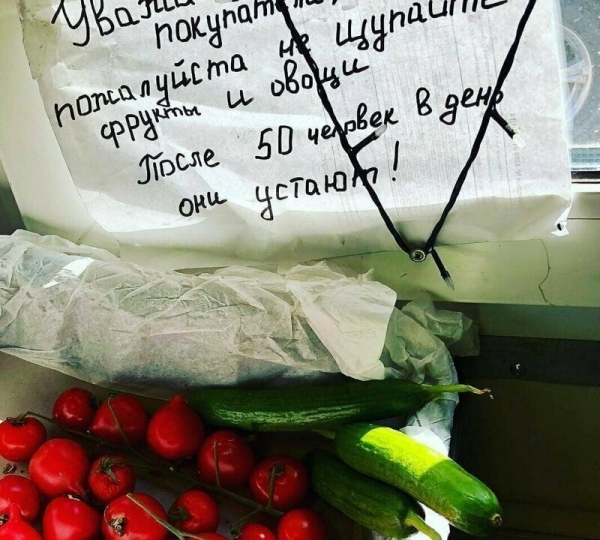 покупатели,
пожалуйста не щупайте
фрукты и овощи
После 50 человек в день
они устают!